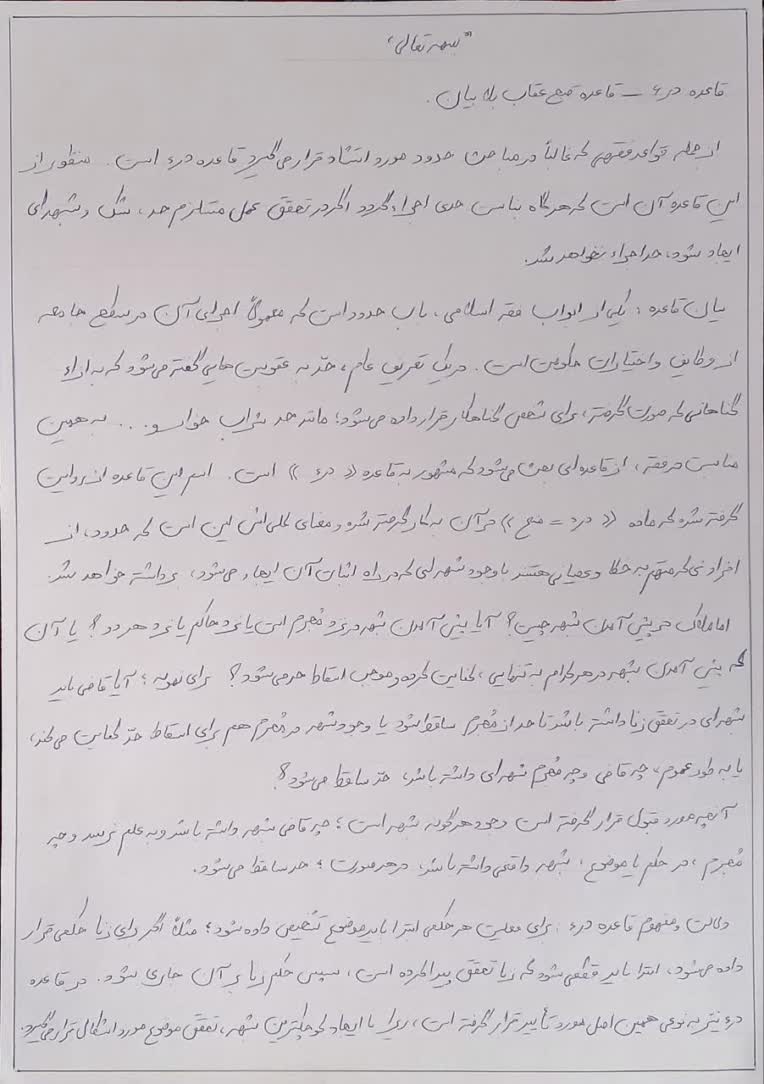 "بسمه تعالی"
قاعده درء – قاعده قبح عقاب بلا بیان.
از جمله قواعد فقهی که غالباً در مباحث حدود مورد استناد قرار می‌گیرد قاعده درء است. منظور از
این قاعده آن است که هرگاه بناست حدی اجراء گردد اگر در تحقق عمل مستلزم حد، شک و شبهه‌ای
ایجاد شود، حد اجراء نخواهد شد.
بیان قاعده: یکی از ابواب فقه اسلامی، باب حدود است که معمولاً اجرای آن در سطح جامعه
از وظایف و اختیارات حکومت است. در یک تعریف عام، حدّ به عقوبت هایی گفته می‌شود که به ازاء
گناهانی که صورت گرفته، برای شخص گناهکار قرار داده می‌شود؛ مانند حد شراب خوار و... به همین
مناسبت در فقه، از قاعده‌ای بحث می‌شود که مشهور به قاعده «درء» است. اسم این قاعده از روایت
گرفته شده که ماده «درء = منع» در آن به کار گرفته شده و معنای کلی اش این است که حدود، از
افرادی که متهم به خطا و عصیانی هستند با وجود شبهه ای که در راه اثبات آن ایجاد می‌شود، برداشته خواهد شد.
اما ملاک در پیش آمدن شبهه چیست؟ آیا پیش آمدن شبهه در نزد مُجرم است یا نزد حاکم یا نزد هر دو؟ یا آن
که پیش آمدن شبهه در هر کدام به تنهایی، کفایت کرده و موجب اسقاط حد می‌شود؟ برای نمونه؛ آیا قاضی باید
شبهه‌ای در تحقق زنا داشته باشد تا حد از مُجرم ساقط شود یا وجود شبهه در مُجرم هم برای اسقاط حدّ کفایت می‌کند،
یا به طور عموم، چه قاضی و چه مُجرم شبهه‌ای داشته باشد، حدّ ساقط می‌شود؟
آنچه مورد قبول قرار گرفته است وجود هرگونه شبهه است؛ چه قاضی شبهه داشته باشد و به علم نرسد و چه
مُجرم، در حکم یا موضوع، شبهه واقعی داشته باشد، در هر صورت؛ حد ساقط می‌شود.
دلالت و مفهوم قاعده درء: برای فعلیت هر حکمی ابتدا باید موضوع تشخیص داده شود؛ مثلاً اگر برای زنا حکمی قرار
داده می‌شود، ابتدا باید قطعی شود که زنا تحقق پیدا کرده است، سپس حکم زنا بر آن جاری شود. در قاعده
درء نیز به نوعی همین اصل مورد تأیید قرار گرفته است، زیرا با ایجاد کوچکترین شبهه، تحقق موضوع مورد اشکال قرار می‌گیرد.